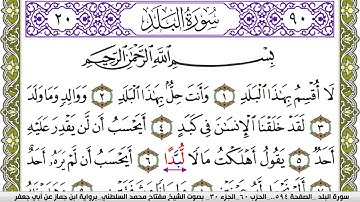 ٢٠ سُورَةُ البَلَدِ ٩٠
بِسْمِ اللَّهِ الرَّحْمَٰنِ الرَّحِيمِ
لَا أُقْسِمُ بِهَٰذَا الْبَلَدِ ١ وَأَنتَ حِلٌّ بِهَٰذَا الْبَلَدِ ٢ وَوَالِدٍ وَمَا وَلَدَ
٣ لَقَدْ خَلَقْنَا الْإِنسَٰنَ فِي كَبَدٍ ٤ أَيَحْسَبُ أَن لَّن يَقْدِرَ عَلَيْهِ
أَحَدٌ ٥ يَقُولُ أَهْلَكْتُ مَالًا لُّبَّدًا ٦ أَيَحْسَبُ أَن لَّمْ يَرَهُ أَحَدٌ
سورة البلد _ الصفحة ٥٩٤ .. الحزب ٦٠ _ الجزء ٣٠ _ بصوت الشيخ مفتاح محمد السلطني _ برواية ابن جماز عن أبي جعفر